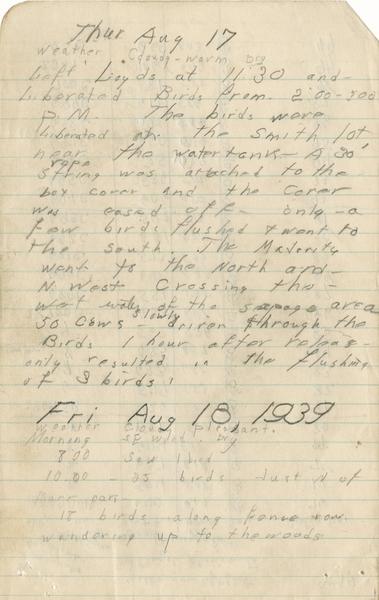 Thur Aug 17
Weather Cloudy - warm Dry
Left Lloyds at 11:30 and -
Liberated Birds from 2:00 - 3:00
P.M. The birds were
Liberated on the Smith lot
near the watertank - A 30'
rope
string was attached to the
box cover and the Cover
was eased off - only - a
few birds flushed & went to
the south. The Majority
went to the North and -
N. West Crossing the -
wet of the seepage area
slowly
50 Cows - driven through the
Birds 1 hour after release -
only resulted in the flushing
of 3 birds!
Fri Aug 18, 1939
Weather Cloudy Pleasant.
Morning wind. Dry
8:00 Saw 1 bird
10:00 - 25 birds Just N of
Barn
18 birds along fence row
wandering up to the woods